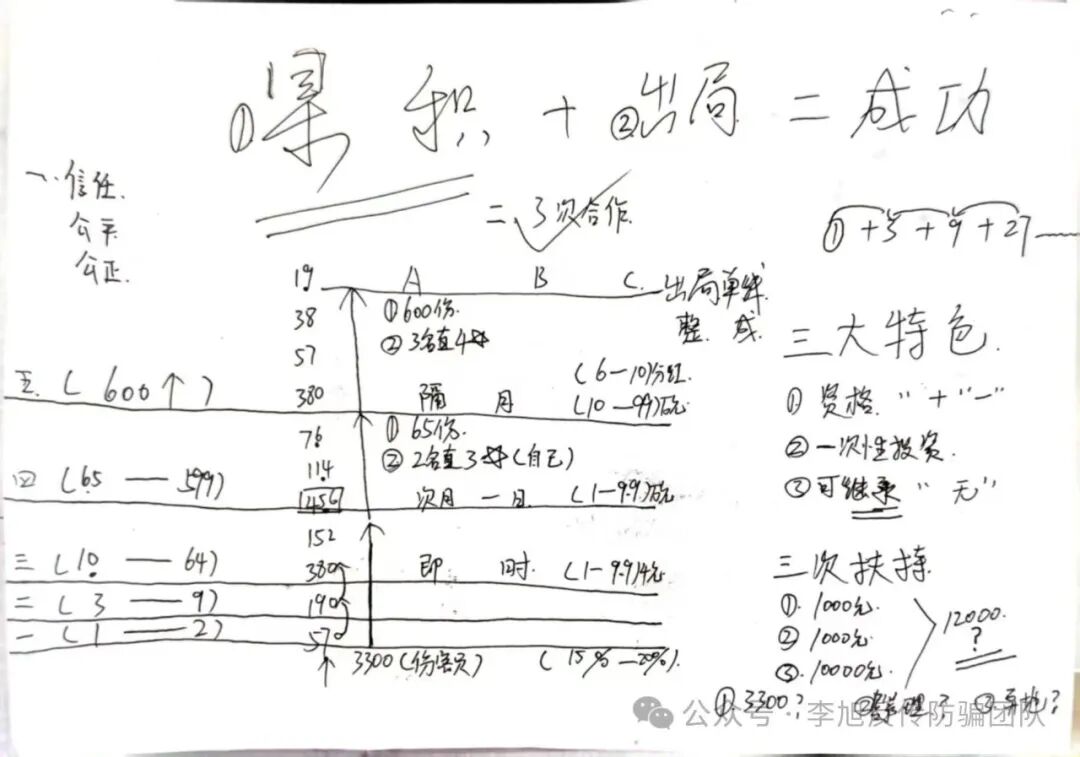 ①累积+②出局=成功
一.信任.
公平
公正.
=3次合作.
①+3+9+27
19. A B C. 出局单线.
整 成.
38 ①600份.
②3名直4
57
(6—10)分红.
五.(600↑) 380 隔 月 (10—99)万元
76 ①65份.
114 ②2名直3(自己)
四(65——599) 456 次月一日 (1—9.9)万元
152
三(10——64) 380 即 时 (1—9.9)千元
二(3——9) 190
一(1——2) 570
3300(份/会员) (15%—20%).
三大特色.
①资格.“+”“—”
②一次性投资.
③可继承“无”
三次扶持.
①.1000元.
②1000元
③.10000元.
12000.
?
①3300? ②管理? ③异地?
公众号·李旭反传防骗团队